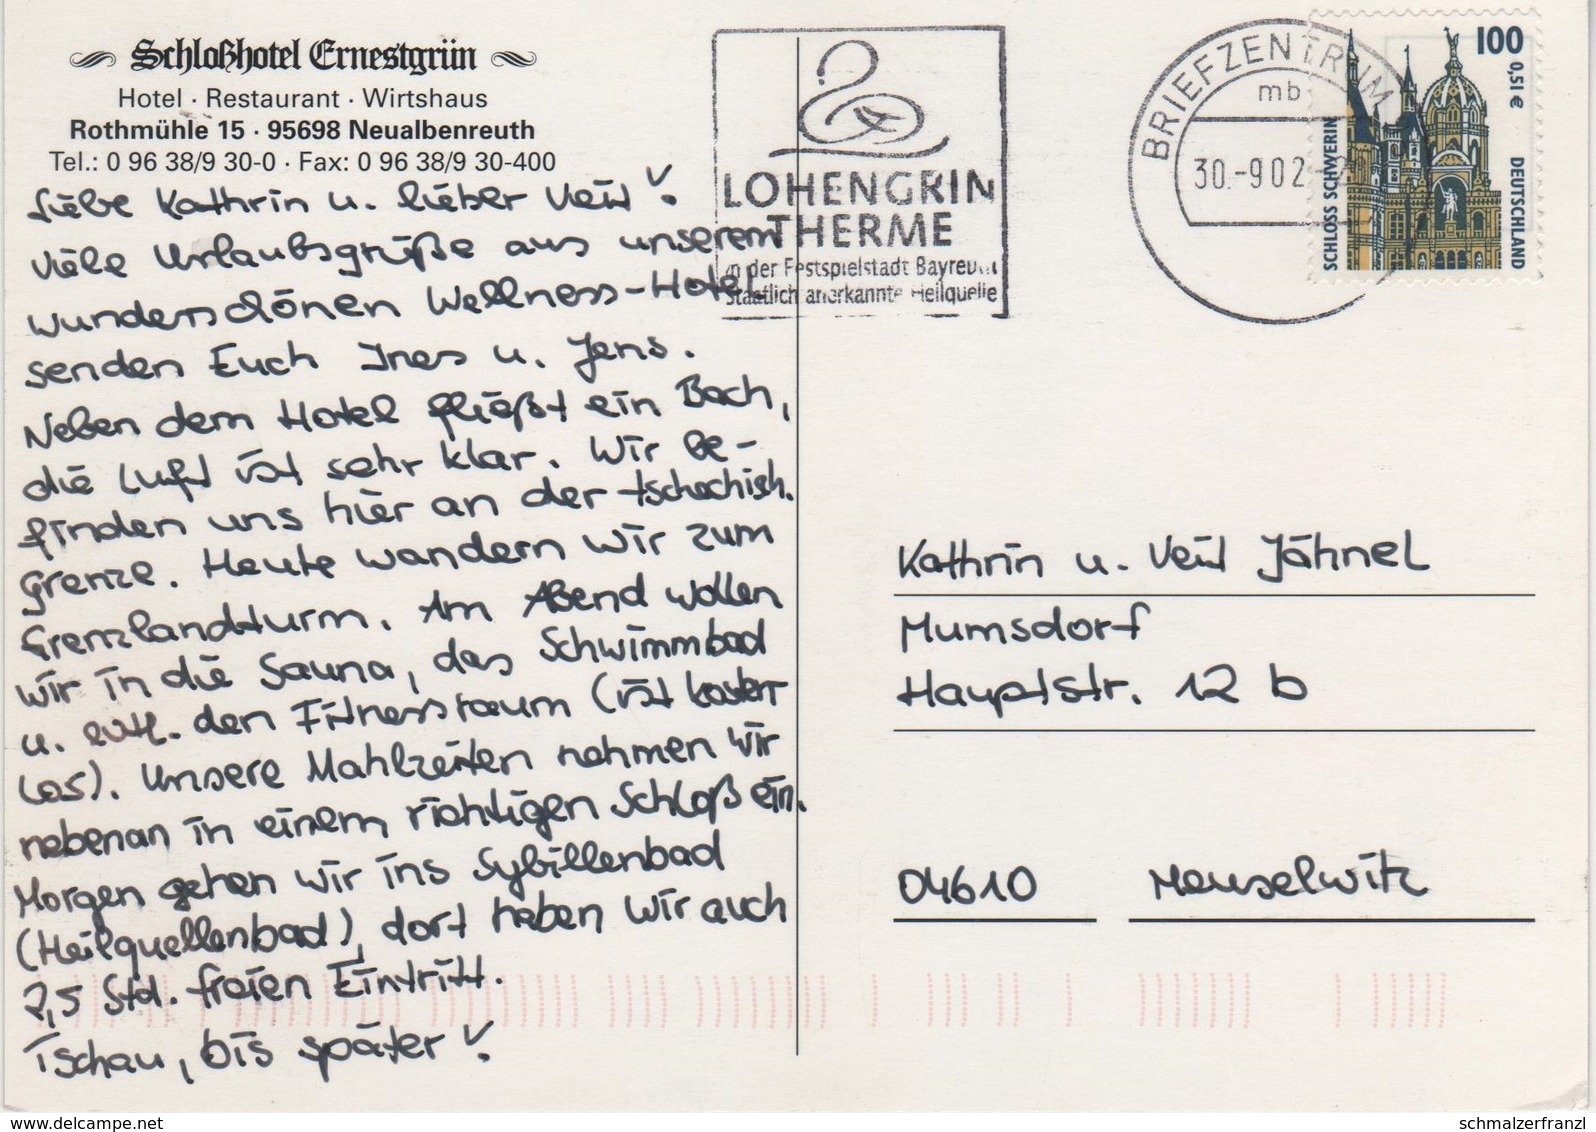 Schloßhotel Ernestgrün
Hotel · Restaurant · Wirtshaus
Rothmühle 15 · 95698 Neualbenreuth
Tel.: 0 96 38/9 30-0 · Fax: 0 96 38/9 30-400
Liebe Kathrin u. lieber Veit!
Viele Urlaubsgrüße aus unserem
wunderschönen Wellness-Hotel
senden Euch Ines u. Jens.
Neben dem Hotel fließt ein Bach,
die Luft ist sehr klar. Wir be-
finden uns hier an der tschechisch.
Grenze. Heute wandern wir zum
Grenzlandturm. Am Abend wollen
wir in die Sauna, das Schwimmbad
u. evtl. den Fitnessraum (ist kosten
los). Unsere Mahlzeiten nehmen wir
nebenan in einem richtigen Schloß ein.
Morgen gehen wir ins Sybillenbad
(Heilquellenbad), dort haben wir auch
2,5 Std. freien Eintritt.
Tschau, bis später!
LOHENGRIN
THERME
in der Festspielstadt Bayreuth
Staatlich anerkannte Heilquelle
BRIEFZENTRUM
mb
30.-9.02
100
0,51 €
SCHLOSS SCHWERIN
DEUTSCHLAND
Kathrin u. Veit Jähnel
Mumsdorf
Hauptstr. 12 b
04610 Meuselwitz
www.delcampe.net
schmalzerfranzl